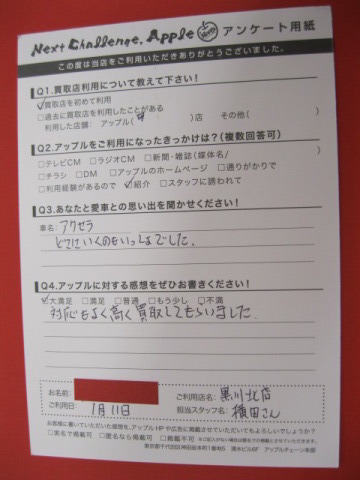 Next Challenge. Apple アンケート用紙
この度は当店をご利用いただきありがとうございました。
Q1.買取店利用について教えて下さい!
☑買取店を初めて利用
□過去に買取店を利用したことがある
利用した店舗: アップル( )店 その他( )
Q2.アップルをご利用になったきっかけは?(複数回答可)
□テレビCM □ラジオCM □新聞・雑誌(媒体名/ )
□チラシ □DM □アップルのホームページ □通りがかりで
□利用経験があるので ☑紹介 □スタッフに誘われて
Q3.あなたと愛車との思い出を聞かせください!
車名: アクセラ
どこにいくのもいっしょでした。
Q4.アップルに対する感想をぜひお書きください!
☑大満足 □満足 □普通 □もう少し □不満
対応もよく高く買取してもらいました。
お名前:
ご利用店名: 黒川北店
ご利用日: 1月11日
担当スタッフ名: 横田さん
お客様に書いていただいた感想を、アップルHPや広告に掲載させていただいてもよろしいでしょうか?
□実名で掲載可 □匿名なら掲載可 □掲載不可 ※ご記入がない場合は匿名での掲載とさせていただきます。